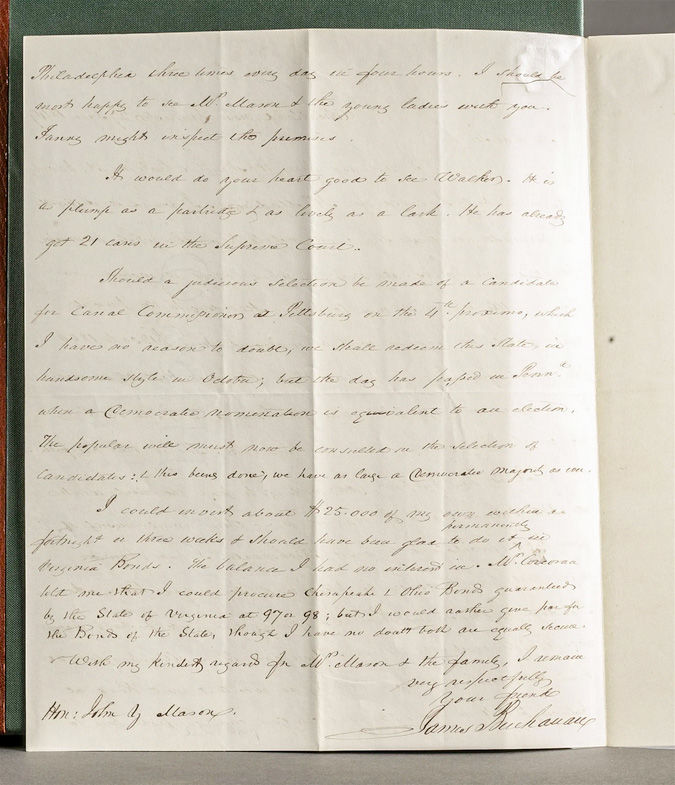 Philadelphia three times every day in four hours. I should be
most happy to see Mrs. Mason & the young ladies with you.
Fanny might inspect the premises.
It would do your heart good to see Walker. He is
as plump as a partridge & as lively as a lark. He has already
got 21 cases in the Supreme Court.
Should a judicious selection be made of a candidate
for Canal Commissioner at Pittsburg on the 4th. proximo, which
I have no reason to doubt, we shall redeem this State in
handsome style in October; but the day has passed in Penna.
when a Democratic nomination is equivalent to an election.
The popular will must now be consulted in the selection of
candidates: & this being done, we have as large a Democratic majority as ever.
I could invest about $25.000 of my own within a
permanently
fortnight or three weeks & should have been glad to do it ^ in
Virginia Bonds. The balance I had no interest in. Mr. Corcoran
told me that I could procure Chesapeake & Ohio Bonds guaranteed
by the State of Virginia at 97 or 98; but I would rather give par for
the Bonds of the State, though I have no doubt both are equally secure.
With my kindest regards for Mrs. Mason & the family, I remain
very respectfully
Your friend
James Buchanan
Hon: John Y Mason.